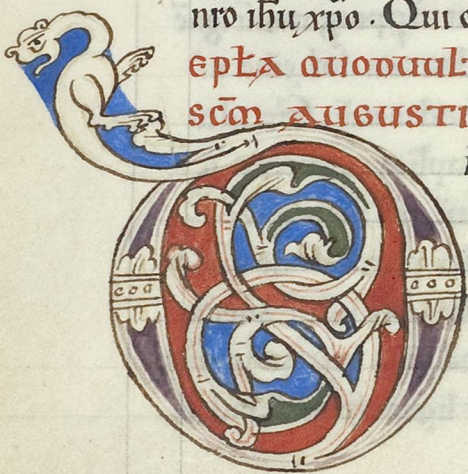 nro ihu xpo. Qui
epła quoduult
scm augusti
D